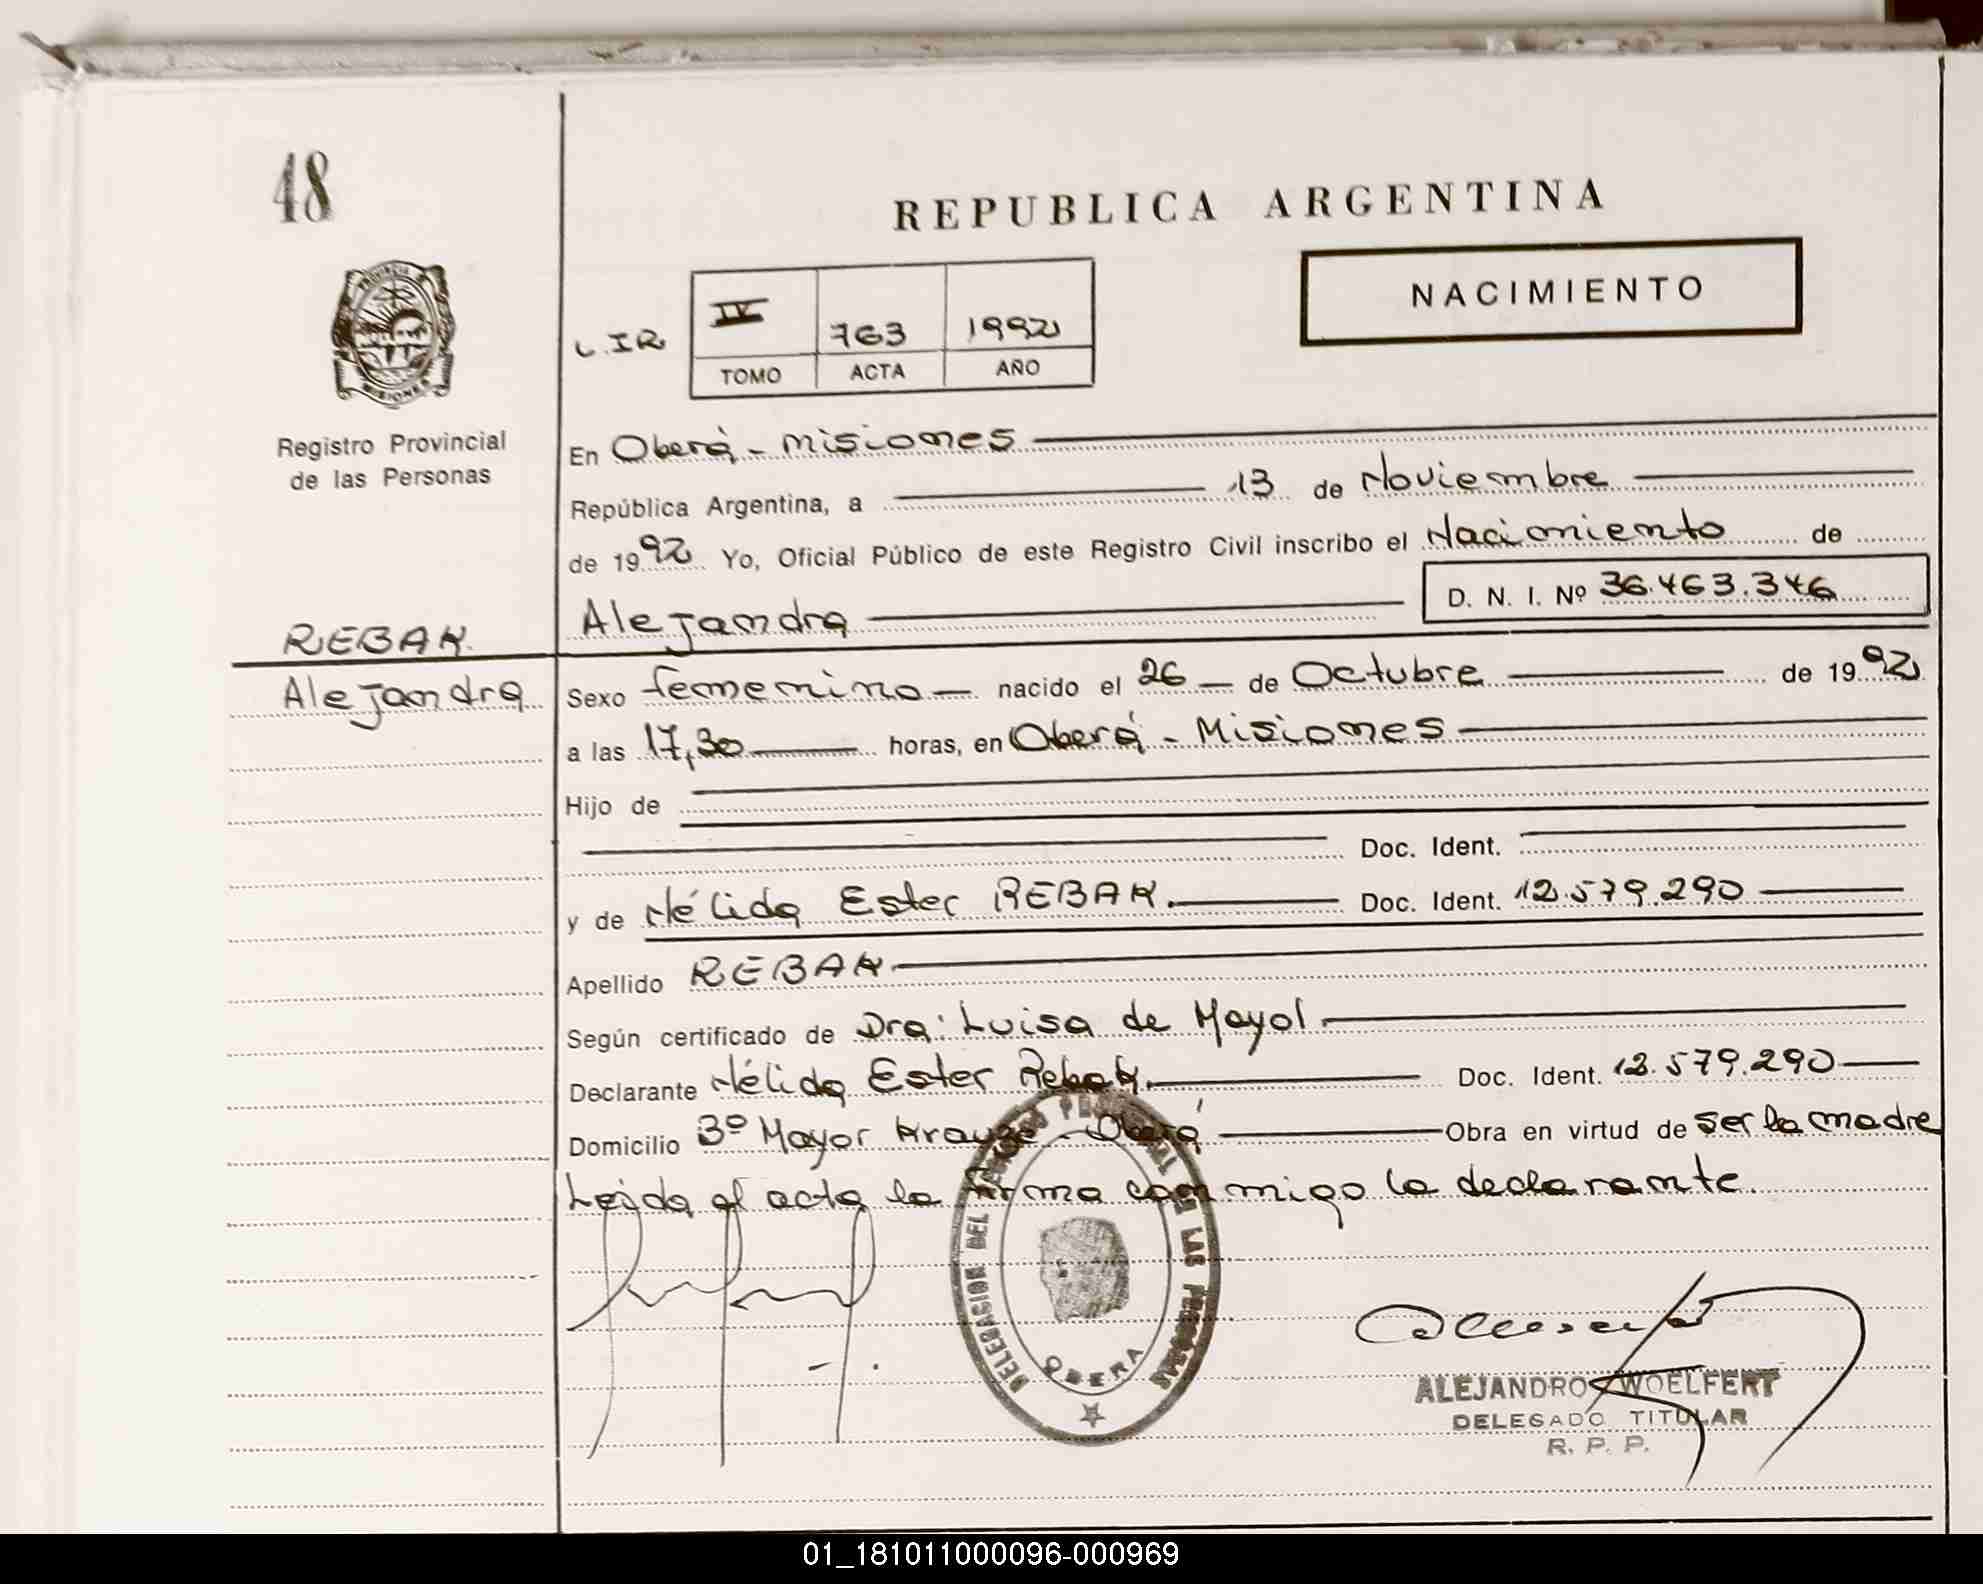 48
REPUBLICA ARGENTINA
NACIMIENTO
L.IR
IV 763 1992
TOMO ACTA AÑO
PROVINCIA MISIONES
Registro Provincial
de las Personas
En Oberá - Misiones
República Argentina, a 13 de Noviembre
de 1992 Yo, Oficial Público de este Registro Civil inscribo el Nacimiento de
Alejandra D. N. I. Nº 36.463.346
REBAK.
Alejandra
Sexo femenino nacido el 26 de Octubre de 1992
a las 17,30 horas, en Oberá - Misiones
Hijo de
Doc. Ident.
y de Nélida Ester REBAK. Doc. Ident. 12.579.290
Apellido REBAK
Según certificado de Dra: Luisa de Mayol
Declarante Nélida Ester Rebak. Doc. Ident. 12.579.290
Domicilio Bº Mayor Krause - Oberá Obra en virtud de ser la madre
Leida el acta la firma conmigo la declarante.
DELEGACION DEL REGISTRO PROVINCIAL DE LAS PERSONAS
OBERA
ALEJANDRO WOELFERT
DELEGADO TITULAR
R. P. P.
01_181011000096-000969